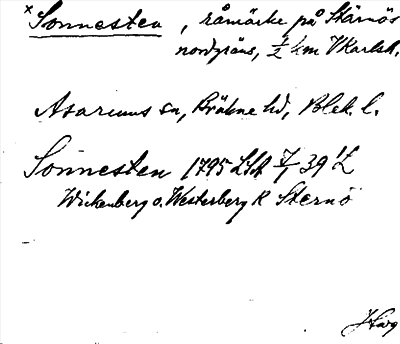 × Sonnesten, råmärke på Stärnös
nordgräns, ½ km V Karlsh.
Asarums sn, Bräkne hd, Blek. l.
Sonnesten 1795 LSA
Wickenberg o. Westerberg R Sternö